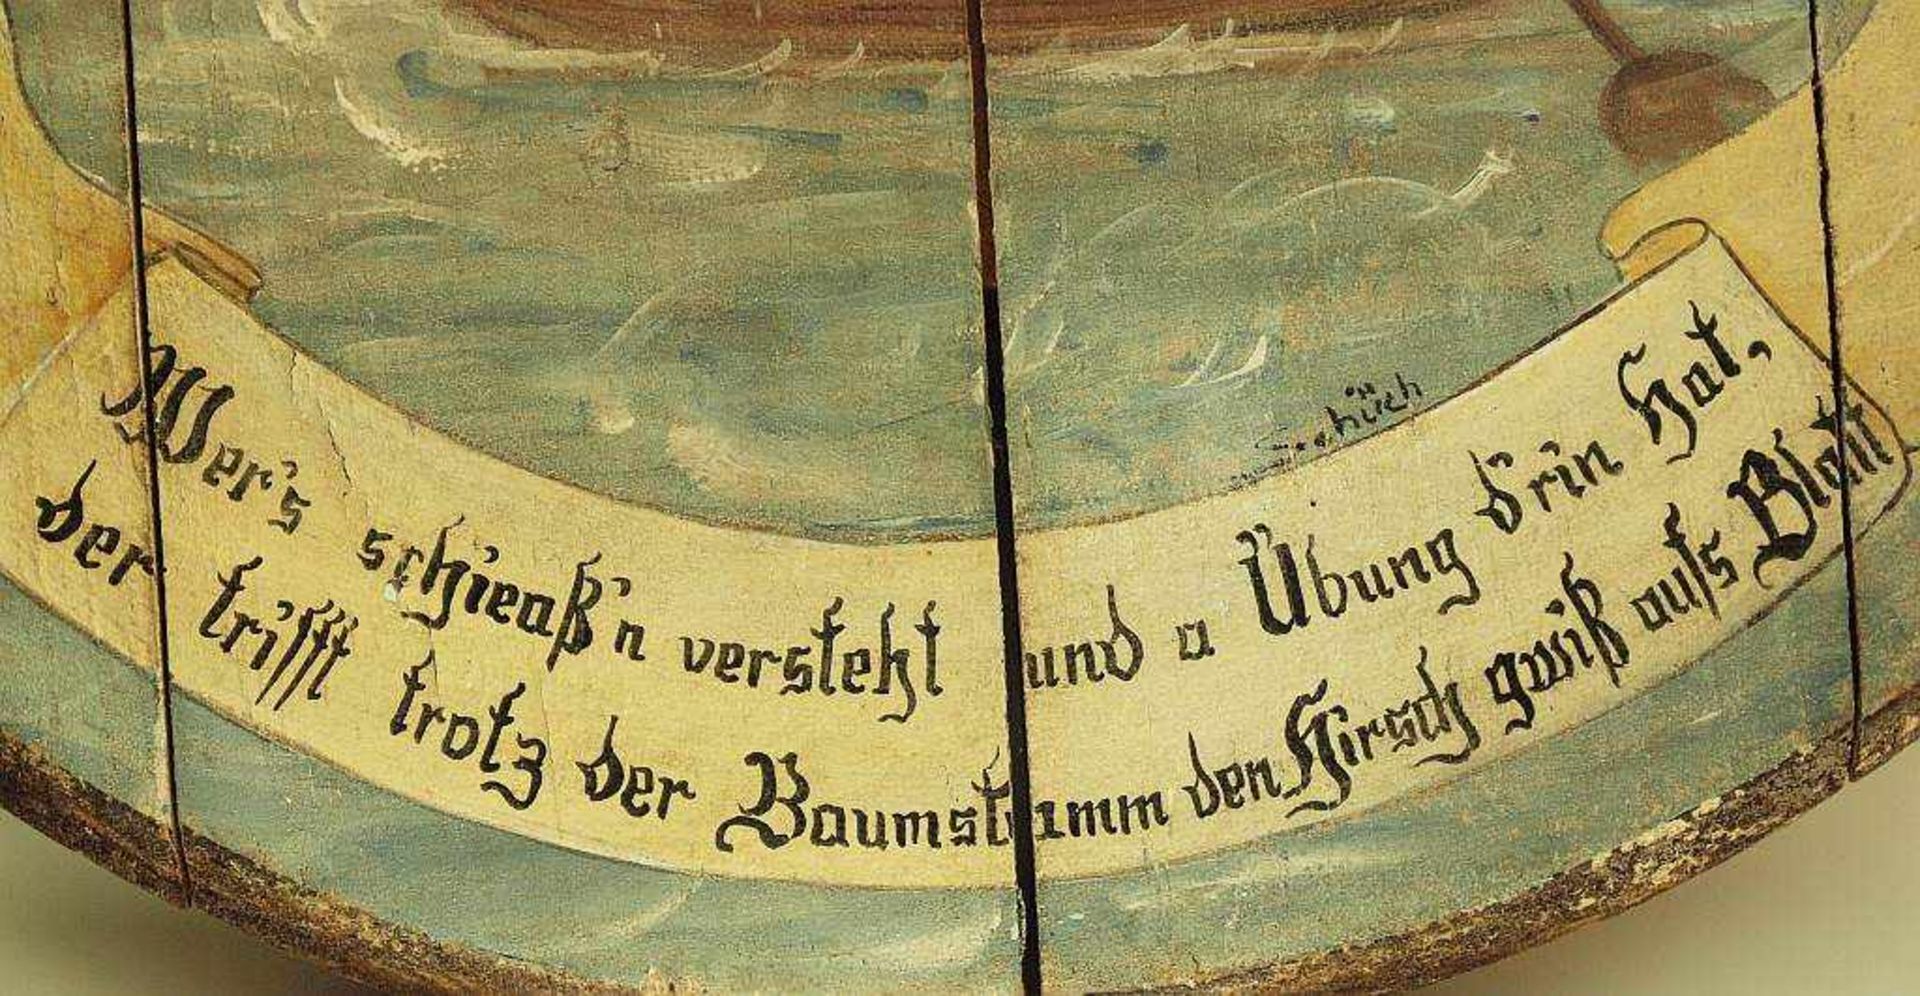 Wer's schieaß'n versteht und a Übung d'rin hat,
der trifft trotz der Baumstamm den Hirsch gwiß aufs Blatt